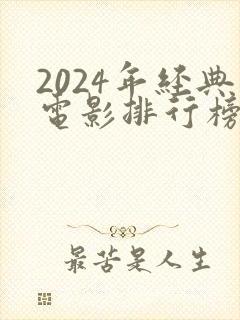 2024年經典
電影排行榜
最苦是人生